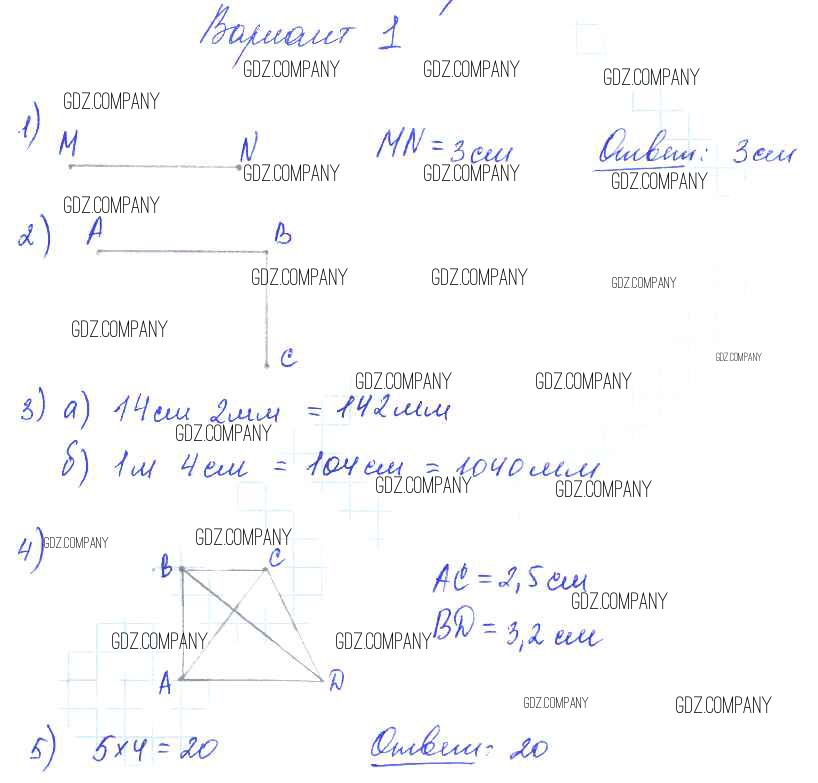 Вариант 1
GDZ.COMPANY GDZ.COMPANY GDZ.COMPANY
GDZ.COMPANY
1) M N MN = 3 см Ответ: 3 см
GDZ.COMPANY GDZ.COMPANY GDZ.COMPANY
GDZ.COMPANY
2) A B
GDZ.COMPANY GDZ.COMPANY GDZ.COMPANY
GDZ.COMPANY
C GDZ.COMPANY
GDZ.COMPANY GDZ.COMPANY
3) а) 14 см 2 мм = 142 мм
GDZ.COMPANY
б) 1 м 4 см = 104 см = 1040 мм
GDZ.COMPANY GDZ.COMPANY
4) GDZ.COMPANY GDZ.COMPANY
B C AC = 2,5 см
GDZ.COMPANY
GDZ.COMPANY GDZ.COMPANY BD = 3,2 см
A D
GDZ.COMPANY GDZ.COMPANY
5) 5×4 = 20 Ответ: 20